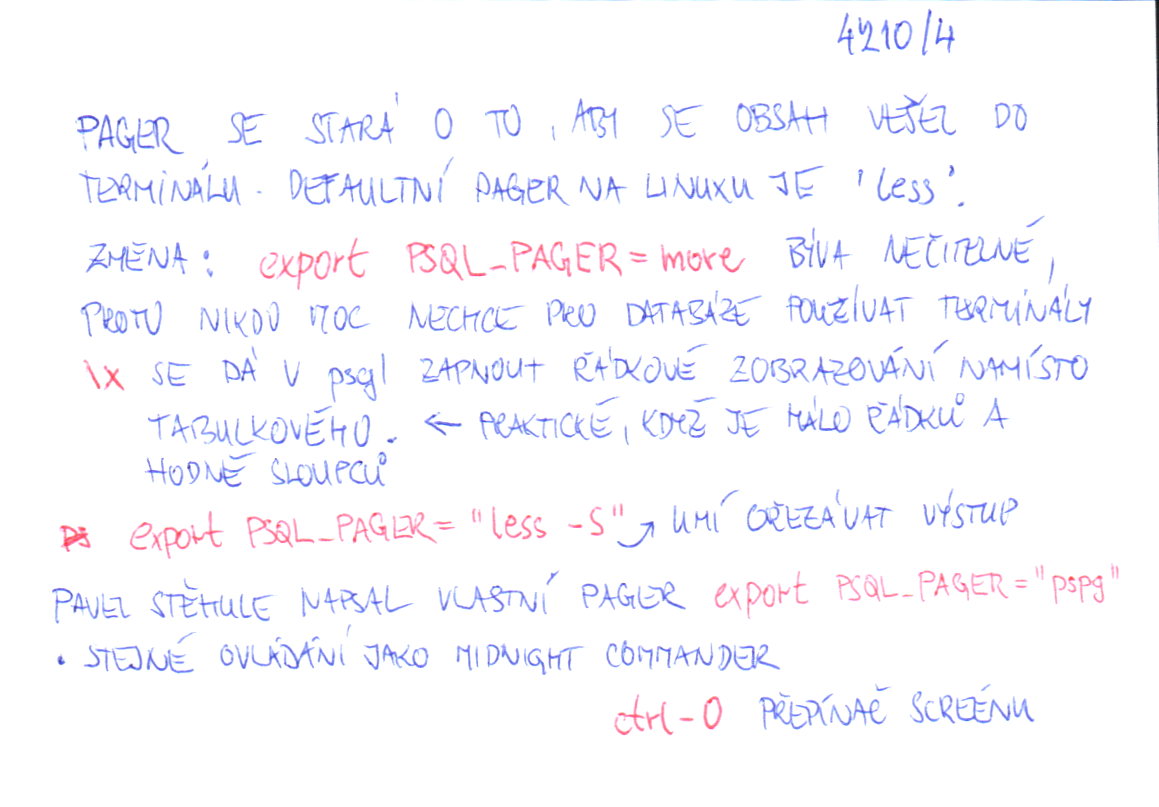 4210/4
PAGER SE STARÁ O TO, ABY SE OBSAH VEŠEL DO
TERMINÁLU. DEFAULTNÍ PAGER NA LINUXU JE 'less'.
ZMĚNA: export PSQL_PAGER=more BÝVÁ NEČITELNÉ,
PROTO NIKDO MOC NECHCE PRO DATABÁZE POUŽÍVAT TERMINÁLY
\x SE DÁ V psql ZAPNOUT ŘÁDKOVÉ ZOBRAZOVÁNÍ NAMÍSTO
TABULKOVÉHO. ← PRAKTICKÉ, KDYŽ JE MÁLO ŘÁDKŮ A
HODNĚ SLOUPCŮ
export PSQL_PAGER="less -S" UMÍ OŘEZÁVAT VÝSTUP
PAVEL STĚHULE NAPSAL VLASTNÍ PAGER export PSQL_PAGER="pspg"
• STEJNÉ OVLÁDÁNÍ JAKO MIDNIGHT COMMANDER
ctrl-O PŘEPÍNAČ SCREÉNU